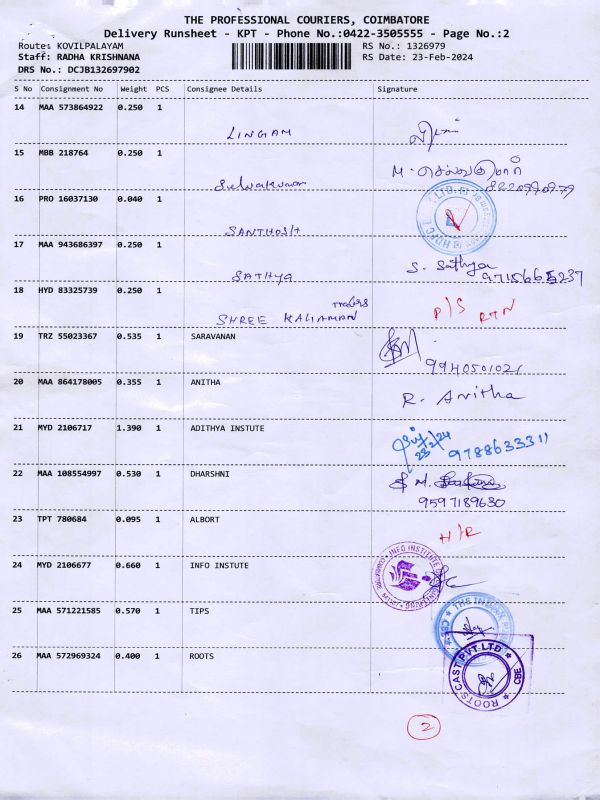 THE PROFESSIONAL COURIERS, COIMBATORE
Delivery Runsheet - KPT - Phone No.:0422-3505555 - Page No.:2
Route: KOVILPALAYAM RS No.: 1326979
Staff: RADHA KRISHNANA RS Date: 23-Feb-2024
DRS No.: DCJB132697902
S No Consignment No Weight PCS Consignee Details Signature
14 MAA 573864922 0.250 1
LINGAM
15 MBB 218764 0.250 1
M. செல்வகுமார்
Selvakumar
16 PRO 16037130 0.040 1
SANTHOSH
17 MAA 943686397 0.250 1
S. Sathya
SATHYA 9715665237
18 HYD 83325739 0.250 1
SHREE KALIAMAN Traders P/S RTN
19 TRZ 55023367 0.535 1 SARAVANAN
9940501021
20 MAA 864178005 0.355 1 ANITHA
R. Anitha
21 MYD 2106717 1.390 1 ADITHYA INSTUTE
23/2/24 9788633311
22 MAA 108554997 0.530 1 DHARSHNI
9597189630
23 TPT 780684 0.095 1 ALBORT
H/R
24 MYD 2106677 0.660 1 INFO INSTUTE
INFO INSTITUTE OF ENGINEERING
25 MAA 571221585 0.570 1 TIPS
THE INDIAN
26 MAA 572969324 0.400 1 ROOTS
ROOTS CAST PVT LTD CBE
2